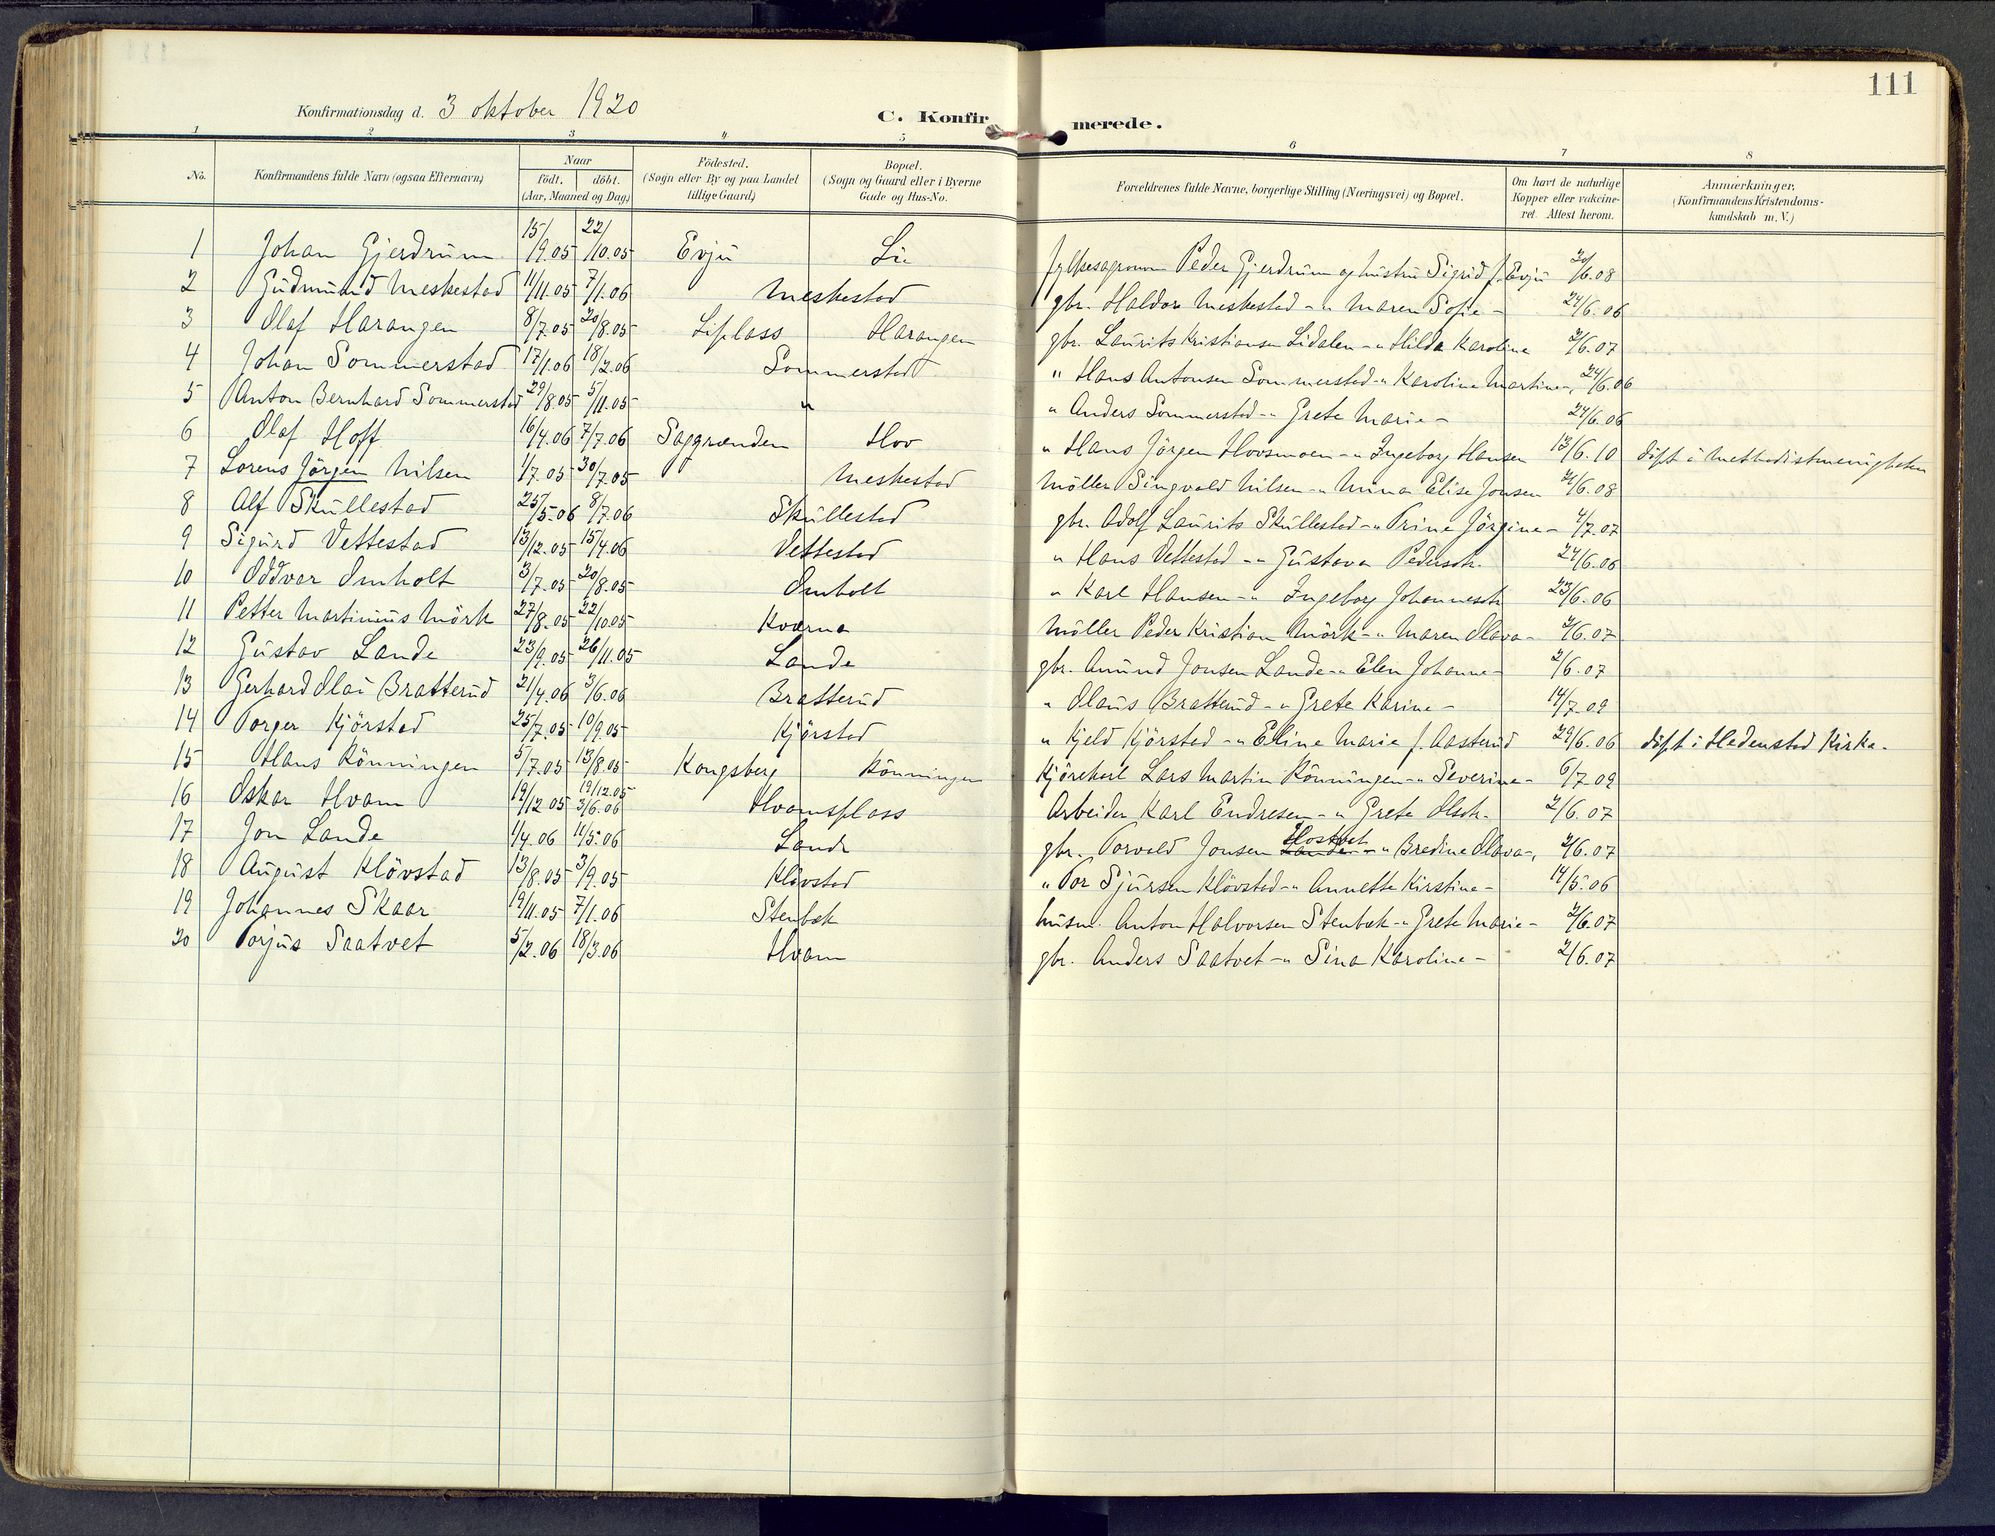 111
Konfirmationsdag d. 3 oktober 1920 C. Konfirmerede.
1 2 3 4 5 6 7 8
No. Konfirmandens fulde Navn (ogsaa Efternavn) Naar født. døbt. (Aar, Maaned og Dag) Fødested. (Sogn eller By og paa Landet tillige Gaard) Bopæl. (Sogn og Gaard eller i Byerne Gade og Hus-No. Forældrenes fulde Navne, borgerlige Stilling (Næringsvei) og Bopæl. Om havt de naturlige Kopper eller vakcineret. Attest herom. Anmærkninger. (Konfirmandens Kristendomskundskab m. V.)
1 Johan Gjerdrum 15/9.05 22/10.05 Evju Li fylkesagronom Peder Gjerdrum og hustru Sigrid f. Evju 20/6.08
2 Gudmund Meskestad 11/11.05 7/1.06 Meskestad gbr. Haldor Meskestad -"- Maren Sofie - 24/6.06
3 Olaf Harangen 8/7.05 20/8.05 Liplass Harangen gbr. Laurits Kristiansen Lidalen -"- Hilda Karoline 2/6.07
4 Johan Sommerstad 17/1.06 18/2.06 Sommerstad " Hans Antonsen Sommerstad -"- Karoline Martine -, 24/6.06
5 Anton Bernhard Sommerstad 29/8.05 5/11.05 " " Anders Sommerstad -"- Grete Marie - 24/6.06
6 Olaf Hoff 16/4.06 7/7.06 Saggrenden Hov " Hans Jörgen Hovsmoen -"- Ingeborg Hansen 13/6.10 döpt i Methodistmenigheten
7 Lorens Jörgen Nilsen 1/7.05 30/7.05 Meskestad Möller Singvald Nilsen -"- Mina Elise Jonsen 21/6.08
8 Alf Skullestad 25/5.06 8/7.06 Skullestad gbr. Adolf Laurits Skullestad -"- Trine Jörgine - 4/7.07
9 Sigurd Vettestad 13/12.05 15/4.06 Vettestad " Hans Vettestad -"- Gustava Pedersdtr. 24/6.06
10 Oddvar Omholt 3/7.05 20/8.05 Omholt " Karl Hansen -"- Ingeborg Johannesdtr 23/6.06
11 Petter Martinius Mörk 27/8.05 22/10.05 Kverna Möller Peder Kristian Mörk -"- Maren Olava - 2/6.07
12 Gustav Lande 23/9.05 26/11.05 Lande gbr. Amund Jonsen Lande -"- Elen Johanne - 2/6.07
13 Gerhard Olai Bratterud 21/4.06 3/6.06 Bratterud " Olaus Bratterud -"- Grete Karine - 14/7.09
14 Torger Kjörstad 25/7.05 10/9.05 Kjörstad " Kjeld Kjörstad -"- Eline Marie f. Aasterud 29/6.06 döpt i Hedenstad Kirke.
15 Hans Rönningen 5/7.05 13/8.05 Kongsberg Rönningen Kjörekarl Lars Martin Rönningen -"- Severine - 6/7.09
16 Oskar Hvam 19/12.05 19/12.05 3/6.06 Hvamsplass Arbeider Karl Endresen -"- Grete Olsdtr. 2/6.07
17 Jon Lande 1/4.06 11/5.06 Lande gbr. Torvald Jonsen Lande Hostvet -"- Bredine Olava -, 2/6.07
18 August Klövstad 13/8.05 3/9.05 Klövstad " Tor Sjursen Klövstad -"- Annette Kirstine - 14/5.06
19 Johannes Skaar 19/11.05 7/1.06 Stenbæk husm. Anton Halvorsen Stenbæk -"- Grete Marie - 2/6.07
20 Torjus Saatvet 5/2.06 18/3.06 Hvam gbr. Anders Saatvet -"- Sina Karoline - 2/6.07